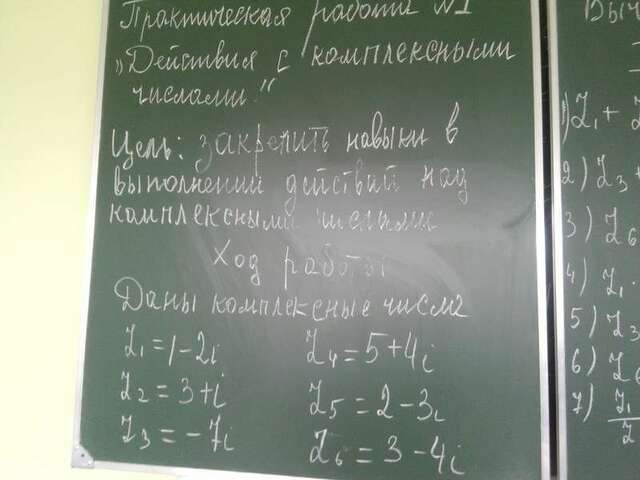 Практическая работа №1
„Действия с комплексными
числами."
Цель: закрепить навыки в
выполнении действий над
комплексными числами
Ход работы
Даны комплексные числа
Z₁ = 1-2i
Z₂ = 3+i
Z₃ = -7i
Z₄ = 5+4i
Z₅ = 2-3i
Z₆ = 3-4i
Выч
1) Z₁ +
2) Z₃ +
3) Z₆
4) Z₁ ·
5) Z₃
6) Z₆
7) Z₁
Z